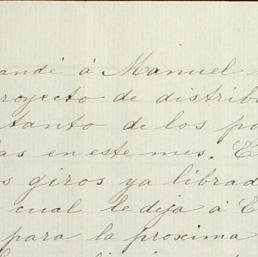 andé á Manuel
royecto de distrib
tanto de los po
as en este mes. E
s giros ya librad
cual le deja á E
para la proxima